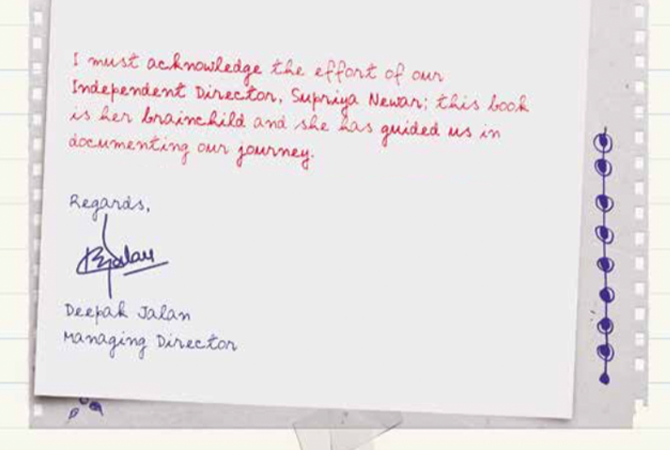 I must acknowledge the effort of our
Independent Director, Supriya Newar; this book
is her brainchild and she has guided us in
documenting our journey.
Regards,
Deepak Jalan
Managing Director